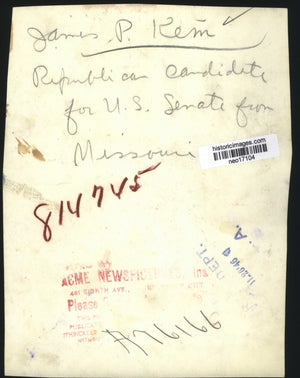 James P. Kem
Republican candidate
for U.S. Senate from
Missouri
historicimages.com
neo17104
814745
ACME NEWSPICTURES, Inc
461 EIGHTH AVE.,
Please
PUBLICAT
WITHOUT
DEPT.
A76166